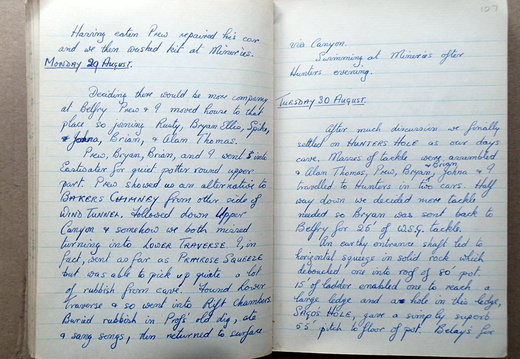 Having eaten Prew repaired his car
and we then washed kit at Mineries.
MONDAY 29 AUGUST.
Deciding there would be more company
at Belfry Prew & I moved house to that
place so joining Rusty, Bryan Ellis, Spike,
& Johna, Brian, & Alan Thomas.
Prew, Bryan, Brian, and I went into
Eastwater for quiet potter round upper
part. Prew showed us an alternative to
BAKERS CHIMNEY from other side of
WIND TUNNEL, followed down Upper
Canyon & somehow we both missed
turning into LOWER TRAVERSE. I, in
fact, went as far as PRIMROSE SQUEEZE
but was able to pick up quite a lot
of rubbish from cave. Found lower
traverse & so went into Rift Chambers.
Buried rubbish in Profs' old dig, ate
& sang songs, then returned to surface
127
via Canyon.
Swimming at Mineries after
Hunters evening.
TUESDAY 30 AUGUST.
After much discussion we finally
settled on HUNTERS HOLE as our days
cave. Masses of tackle were assembled
& Alan Thomas, Prew, Bryan, & Brian Johna & I
travelled to Hunters in two cars. Half
way down we decided more tackle
needed so Bryan was sent back to
Belfry for 25' of W.S.G. tackle.
An earthy entrance shaft led to
horizontal squeeze in solid rock which
debouched one into roof of 80' pot.
15' of ladder enabled one to reach a
large ledge and a hole in this ledge,
SAGOS HOLE, gave a simply superb
55' pitch to floor of pot. Belays for